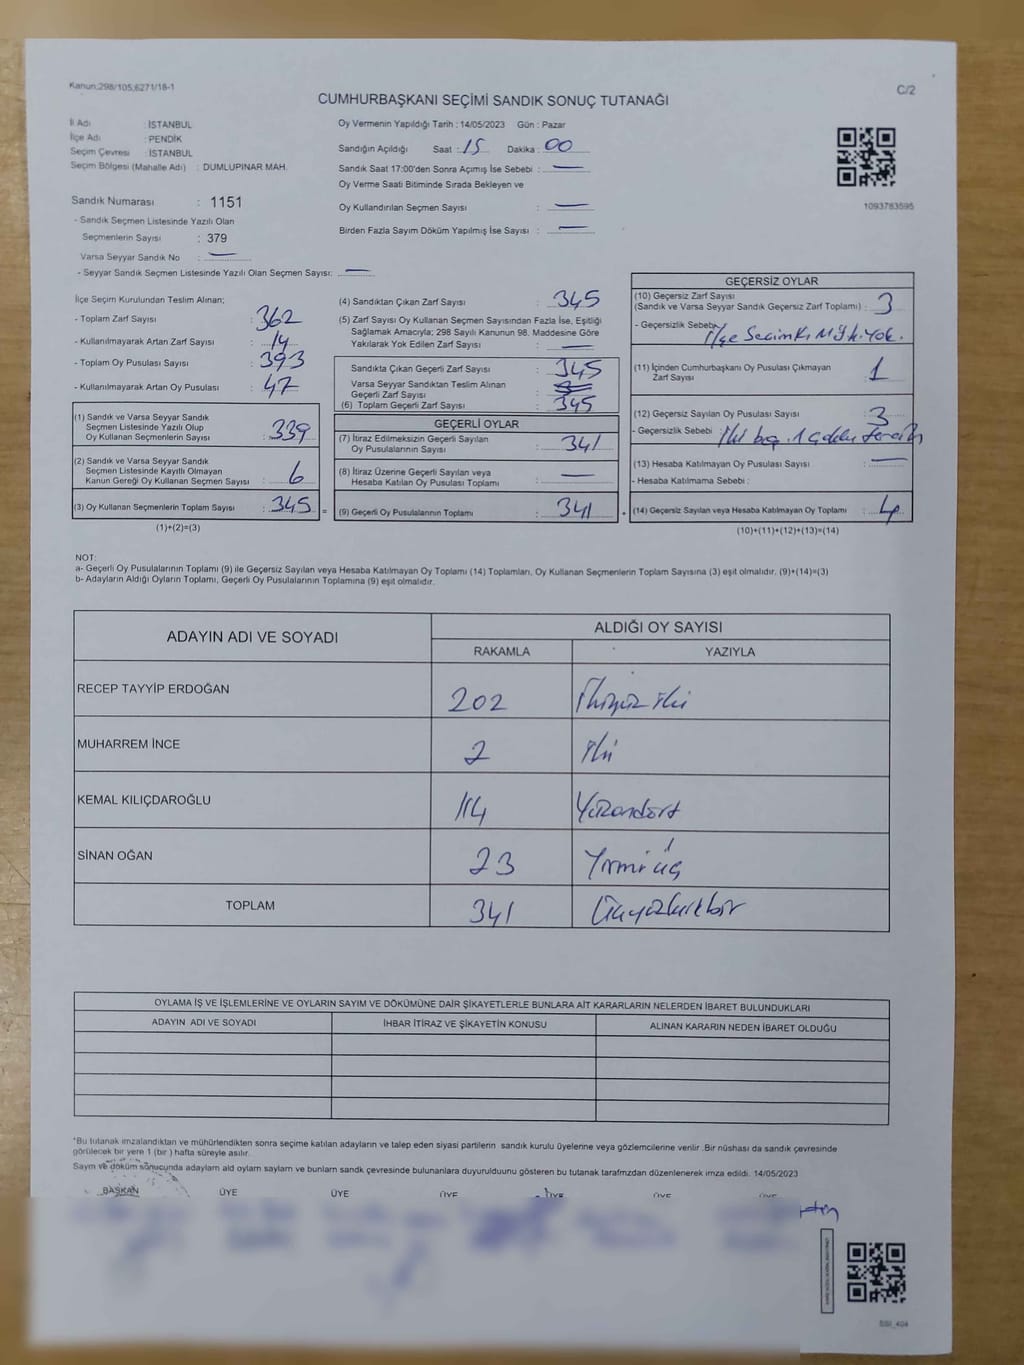 Kanun:298/105,6271/18-1
C/2
CUMHURBAŞKANI SEÇİMİ SANDIK SONUÇ TUTANAĞI
İl Adı : İSTANBUL
İlçe Adı : PENDİK
Seçim Çevresi : İSTANBUL
Seçim Bölgesi (Mahalle Adı) : DUMLUPINAR MAH.
Oy Vermenin Yapıldığı Tarih : 14/05/2023 Gün : Pazar
Sandığın Açıldığı Saat : 15 Dakika : 00
Sandık Saat 17:00'den Sonra Açımış İse Sebebi : —
Oy Verme Saati Bitiminde Sırada Bekleyen ve
Oy Kullandırılan Seçmen Sayısı : —
Birden Fazla Sayım Döküm Yapılmış İse Sayısı : —
1093783595
Sandık Numarası : 1151
- Sandık Seçmen Listesinde Yazılı Olan
Seçmenlerin Sayısı : 379
Varsa Seyyar Sandık No : —
- Seyyar Sandık Seçmen Listesinde Yazılı Olan Seçmen Sayısı: —
İlçe Seçim Kurulundan Teslim Alınan;
- Toplam Zarf Sayısı : 362
- Kullanılmayarak Artan Zarf Sayısı : 14
- Toplam Oy Pusulası Sayısı : 393
- Kullanılmayarak Artan Oy Pusulası : 47
(1) Sandık ve Varsa Seyyar Sandık
Seçmen Listesinde Yazılı Olup
Oy Kullanan Seçmenlerin Sayısı : 339
(2) Sandık ve Varsa Seyyar Sandık
Seçmen Listesinde Kayıtlı Olmayan
Kanun Gereği Oy Kullanan Seçmen Sayısı : 6
(3) Oy Kullanan Seçmenlerin Toplam Sayısı : 345 =
(1)+(2)=(3)
(4) Sandıktan Çıkan Zarf Sayısı : 345
(5) Zarf Sayısı Oy Kullanan Seçmen Sayısından Fazla İse, Eşitliği
Sağlamak Amacıyla; 298 Sayılı Kanunun 98. Maddesine Göre
Yakılarak Yok Edilen Zarf Sayısı : —
Sandıkta Çıkan Geçerli Zarf Sayısı : 345
Varsa Seyyar Sandıktan Teslim Alınan
Geçerli Zarf Sayısı :
(6) Toplam Geçerli Zarf Sayısı : 345
GEÇERLİ OYLAR
(7) İtiraz Edilmeksizin Geçerli Sayılan
Oy Pusulalarının Sayısı : 341
(8) İtiraz Üzerine Geçerli Sayılan veya
Hesaba Katılan Oy Pusulası Toplamı : —
(9) Geçerli Oy Pusulalarının Toplamı : 341 +
GEÇERSİZ OYLAR
(10) Geçersiz Zarf Sayısı
(Sandık ve Varsa Seyyar Sandık Geçersiz Zarf Toplamı) : 3
- Geçersizlik Sebebi : Yok.
(11) İçinden Cumhurbaşkanı Oy Pusulası Çıkmayan
Zarf Sayısı : 1
(12) Geçersiz Sayılan Oy Pusulası Sayısı : 3
- Geçersizlik Sebebi :
(13) Hesaba Katılmayan Oy Pusulası Sayısı : —
- Hesaba Katılmama Sebebi :
(14) Geçersiz Sayılan veya Hesaba Katılmayan Oy Toplamı : 4
(10)+(11)+(12)+(13)=(14)
NOT:
a- Geçerli Oy Pusulalarının Toplamı (9) ile Geçersiz Sayılan veya Hesaba Katılmayan Oy Toplamı (14) Toplamları, Oy Kullanan Seçmenlerin Toplam Sayısına (3) eşit olmalıdır. (9)+(14)=(3)
b- Adayların Aldığı Oyların Toplamı, Geçerli Oy Pusulalarının Toplamına (9) eşit olmalıdır.
ADAYIN ADI VE SOYADI
ALDIĞI OY SAYISI
RAKAMLA YAZIYLA
RECEP TAYYİP ERDOĞAN 202 İkiyüz iki
MUHARREM İNCE 2 iki
KEMAL KILIÇDAROĞLU 114 Yüzondört
SİNAN OĞAN 23 Yirmi üç
TOPLAM 341 Üçyüzkırkbir
OYLAMA İŞ VE İŞLEMLERİNE VE OYLARIN SAYIM VE DÖKÜMÜNE DAİR ŞİKAYETLERLE BUNLARA AİT KARARLARIN NELERDEN İBARET BULUNDUKLARI
ADAYIN ADI VE SOYADI İHBAR İTİRAZ VE ŞİKAYETİN KONUSU ALINAN KARARIN NEDEN İBARET OLDUĞU
*Bu tutanak imzalandıktan ve mühürlendikten sonra seçime katılan adayların ve talep eden siyasi partilerin sandık kurulu üyelerine veya gözlemcilerine verilir .Bir nüshası da sandık çevresinde
görülecek bir yere 1 (bir ) hafta süreyle asılır.
Sayım ve döküm sonucunda adayların ald oyların sayların ve bunların sandık çevresinde bulunanlara duyurulduunu gösteren bu tutanak tarafmzdan düzenlenerek imza edildi. 14/05/2023
BAŞKAN ÜYE ÜYE ÜYE ÜYE ÜYE ÜYE
SSI_404